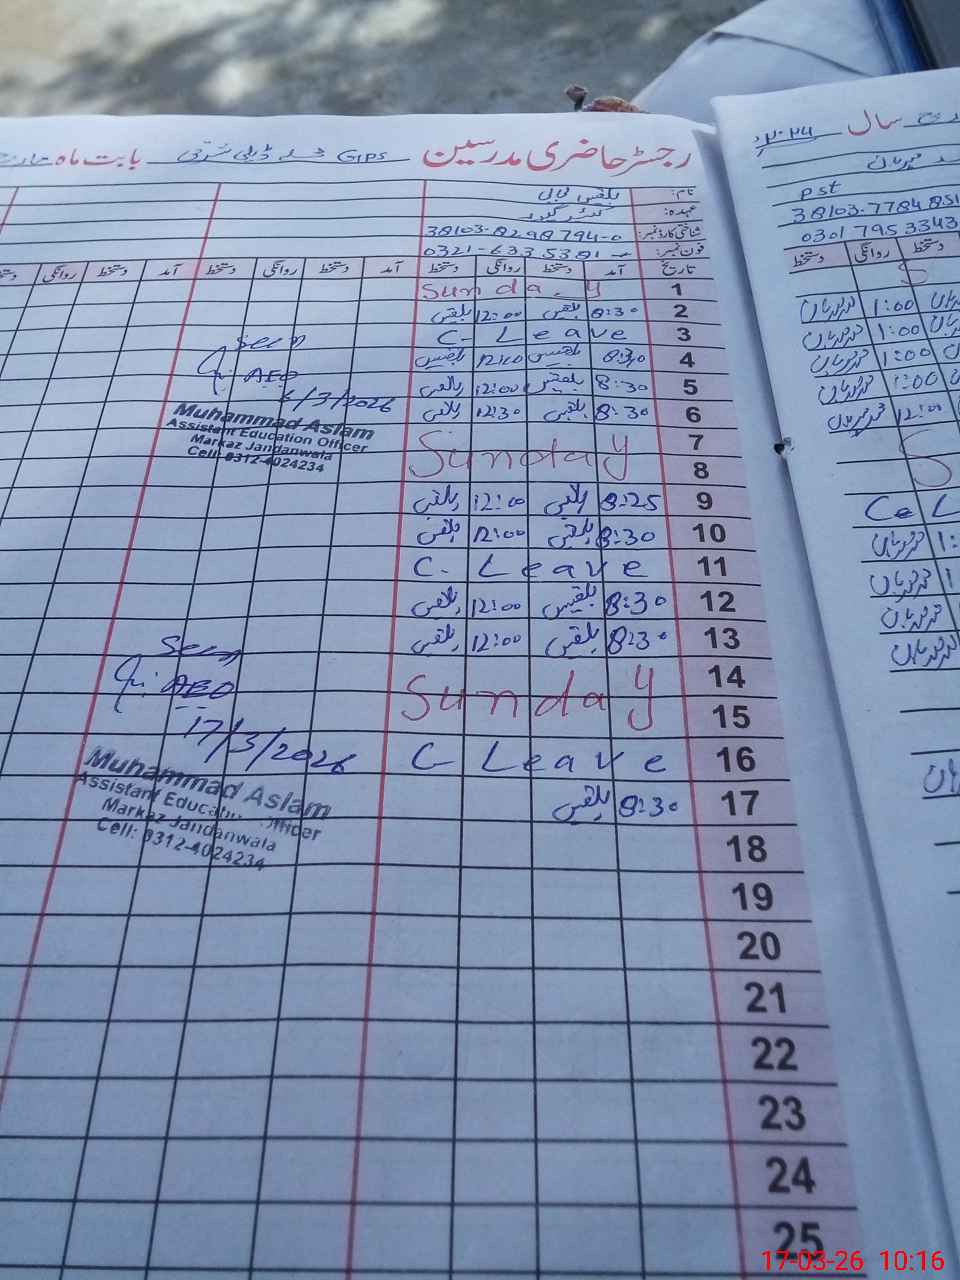 رجسٹر حاضری مدرسین GiPS بابت ماہ
نام: بلقیس بی بی
عہدہ:
شناختی کارڈ نمبر: 38103-8298794-0
فون نمبر: 0321-6335381
تاریخ آمد دستخط روانگی دستخط آمد دستخط روانگی دستخط آمد دستخط روانگی
1 Sunday
2 8:30 بلقیس 12:00 بلقیس
3 C. Leave
4 8:30 بلقیس 12:00 بلقیس
5 8:30 بلقیس 12:00 بلقیس
6 8:30 بلقیس 12:30 بلقیس
7 Sunday
8
9 8:25 بلقیس 12:00 بلقیس
10 8:30 بلقیس 12:00 بلقیس
11 C. Leave
12 8:30 بلقیس 12:00 بلقیس
13 8:30 بلقیس 12:00 بلقیس
14 Sunday
15
16 C Leave
17 8:30 بلقیس
18
19
20
21
22
23
24
25
Seen
AEO
6/3/2026
Muhammad Aslam
Assistant Education Officer
Markaz Jandanwala
Cell: 0312-4024234
Seen
AEO
17/3/2026
Muhammad Aslam
Assistant Education Officer
Markaz Jandanwala
Cell: 0312-4024234
سال
pst
38103-7784851
0301 7953343
دستخط روانگی دستخط
S
1:00
1:00
1:00
1:00
12:00
S
Ce L
17-03-26 10:16